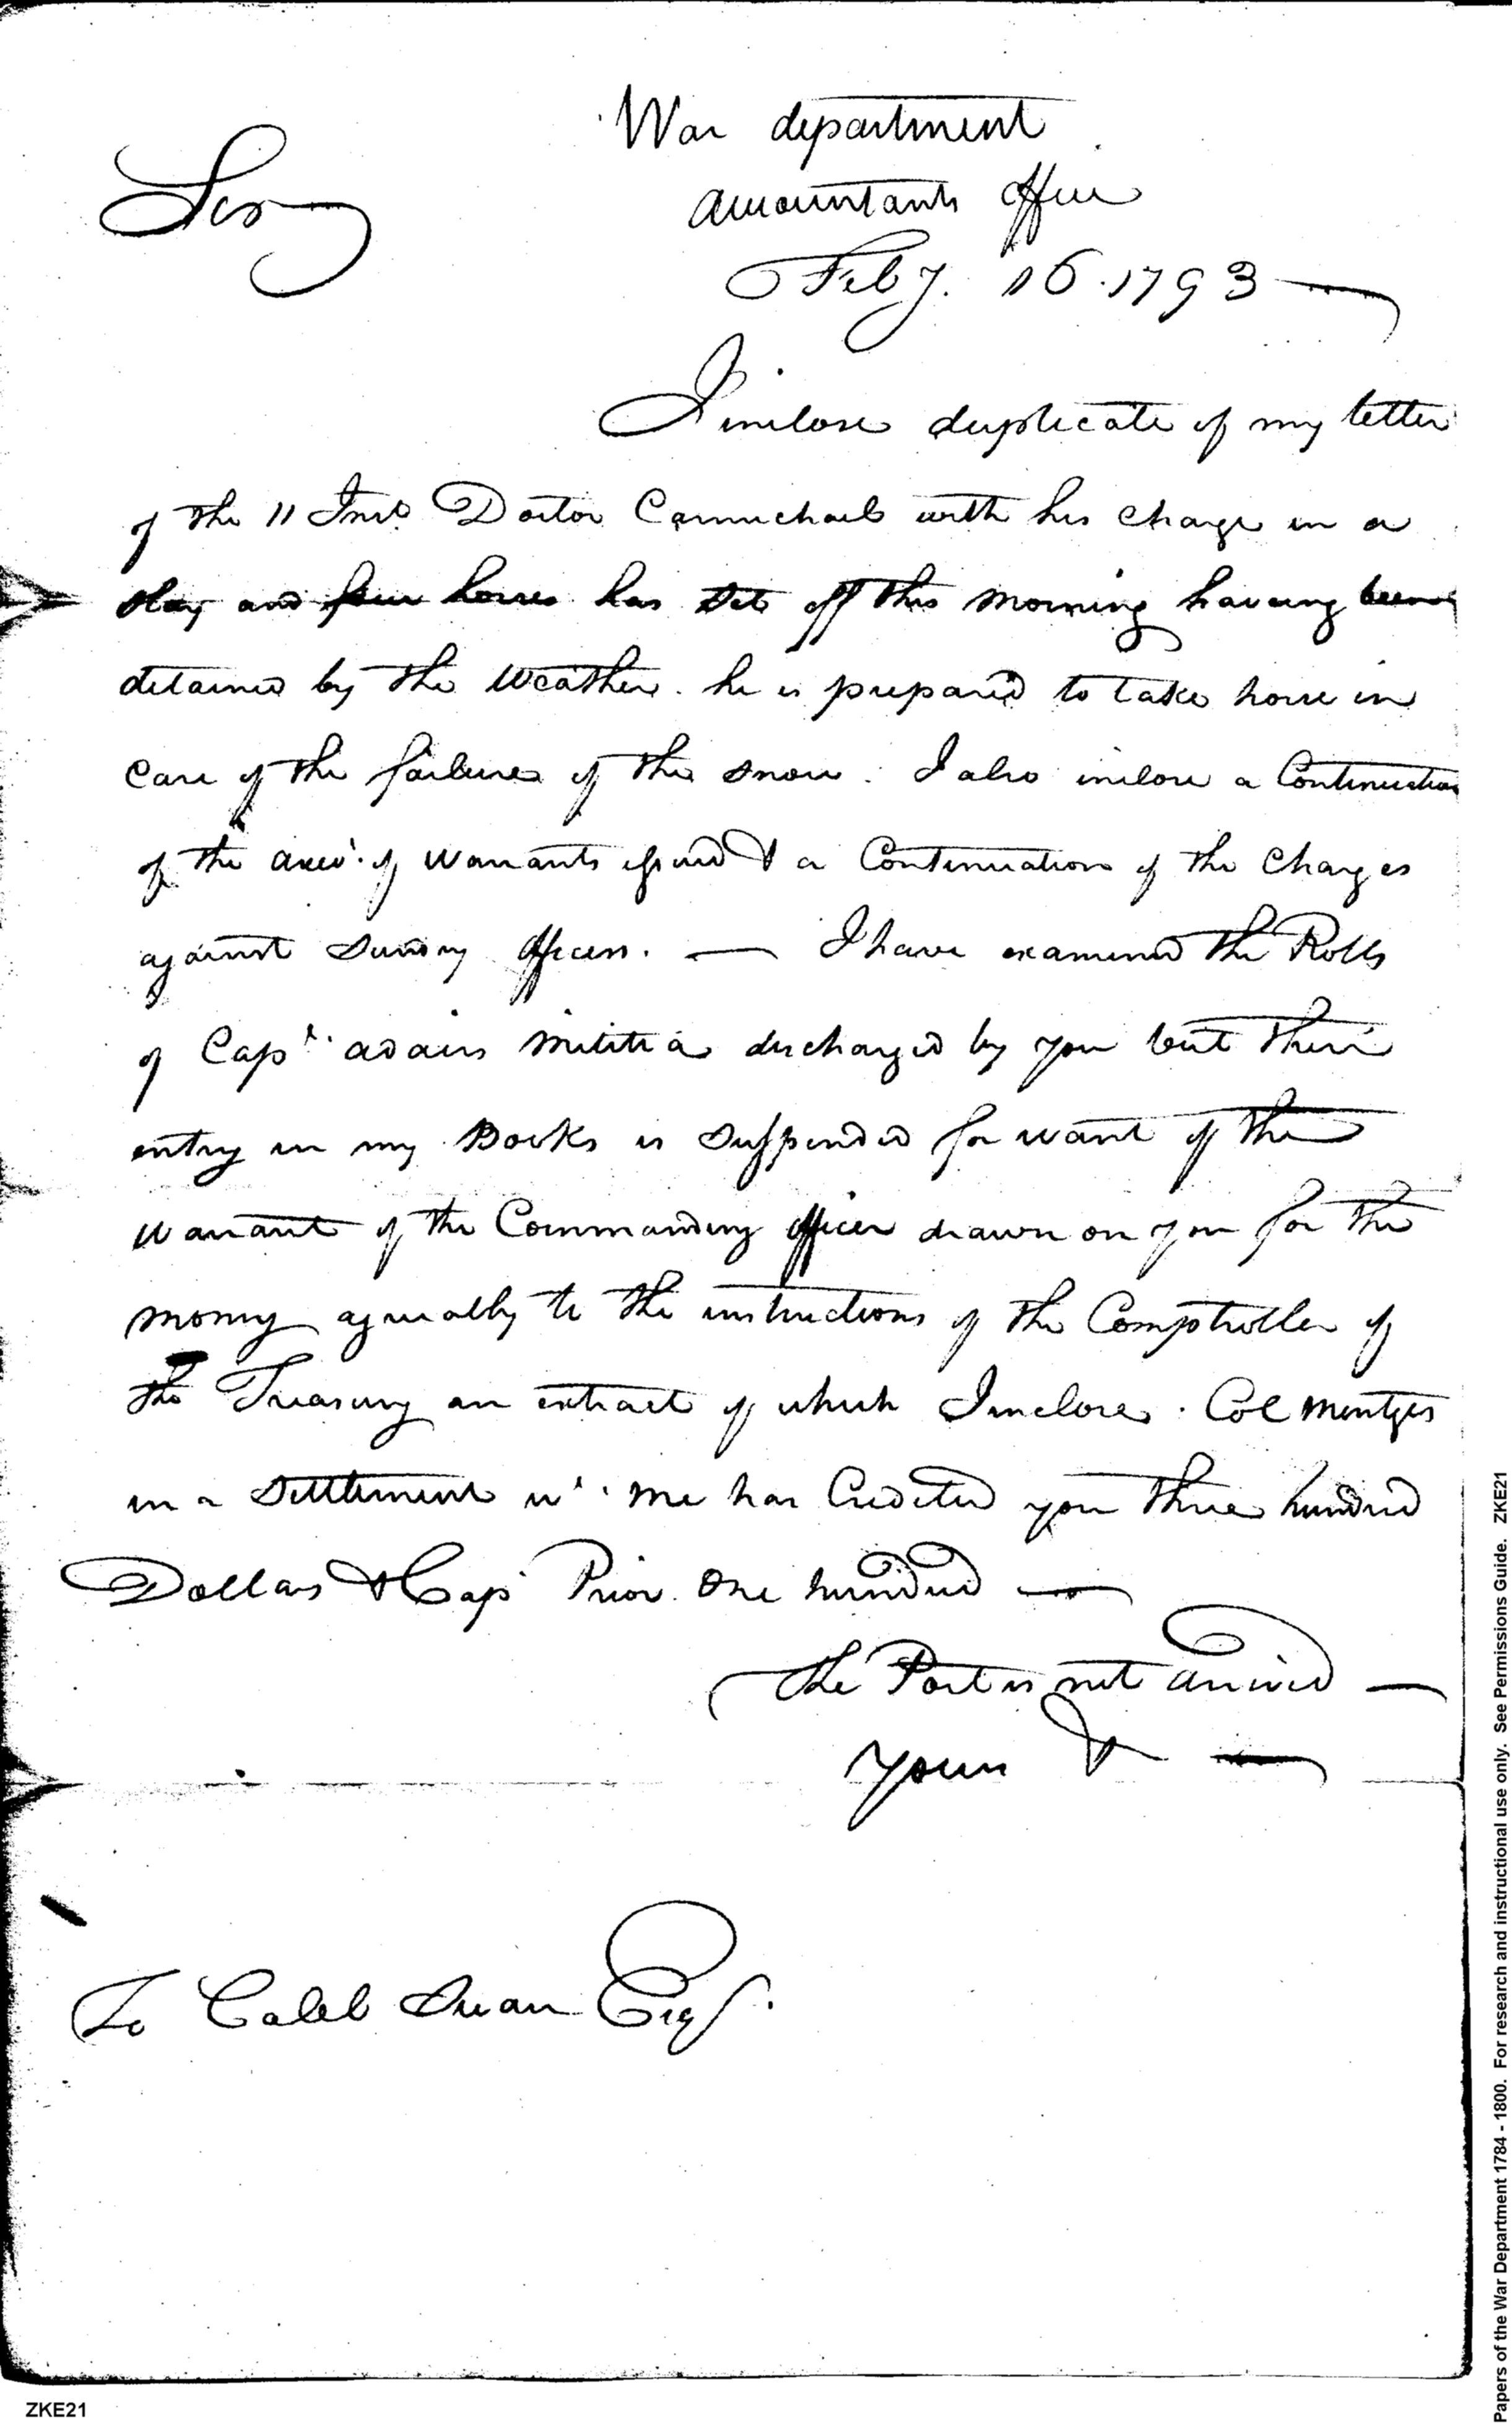 War department
Accountants Office
Sir
Feby. 16. 1793
I inclose duplicate of my letter
of the 11 Inst. Doctor Carmichael with his charge in a
slay and four horses has set off this morning having been
detained by the Weather. he is prepared to take horse in
case of the failure of the snow. I also inclose a Continuation
of the Acct. of Warrants issued & a Continuation of the Charges
against Sundry Officers. — I have examined the Rolls
of Capt. Adairs Militia discharged by you but their
entry in my Books is suspended for want of the
Warrant of the Commanding Officer drawn on you for the
money agreeably to the instructions of the Comptroller of
the Treasury an extract of which I inclose. Col Mentges
in a Settlement wt. me has Credited you three hundred
Dollars & Capt Prior One hundred —
the Post is not arrived —
yours & —
To Caleb Swan Esqr.
Papers of the War Department 1784 - 1800. For research and instructional use only. See Permissions Guide. ZKE21
ZKE21